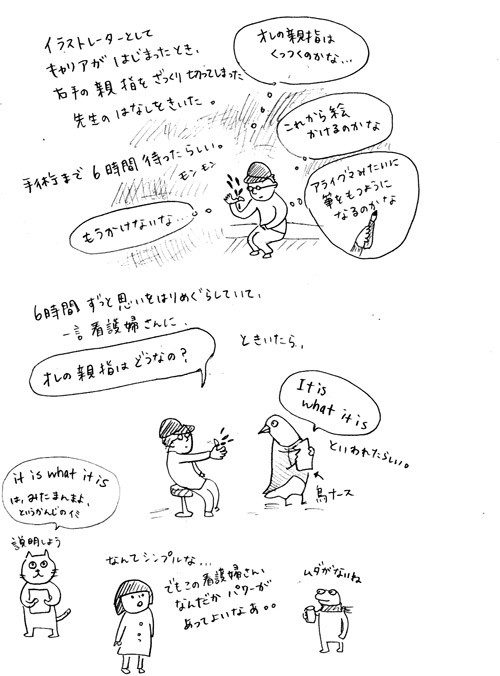 イラストレーターとして
キャリアが はじまったとき、
右手の親指をざっくり切ってしまった
先生のはなしをきいた。
手術まで 6時間 待ったらしい。
モンモン
オレの親指は
くっつくのかな…
これから絵
かけるのかな
アライグマみたいに
筆をもつように
なるのかな
もうかけないな…
6時間 ずっと思いをはりめぐらしていて、
一言 看護婦さんに、
オレの親指は どうなの?
ときいたら、
It is
what it is
といわれたらしい。
鳥ナース
it is what it is
は、みたまんまよ、
というかんじのイミ
説明しよう
なんてシンプルな…
でもこの看護婦さん、
なんだか パワーが
あってよいなあ。。
ムダがないね